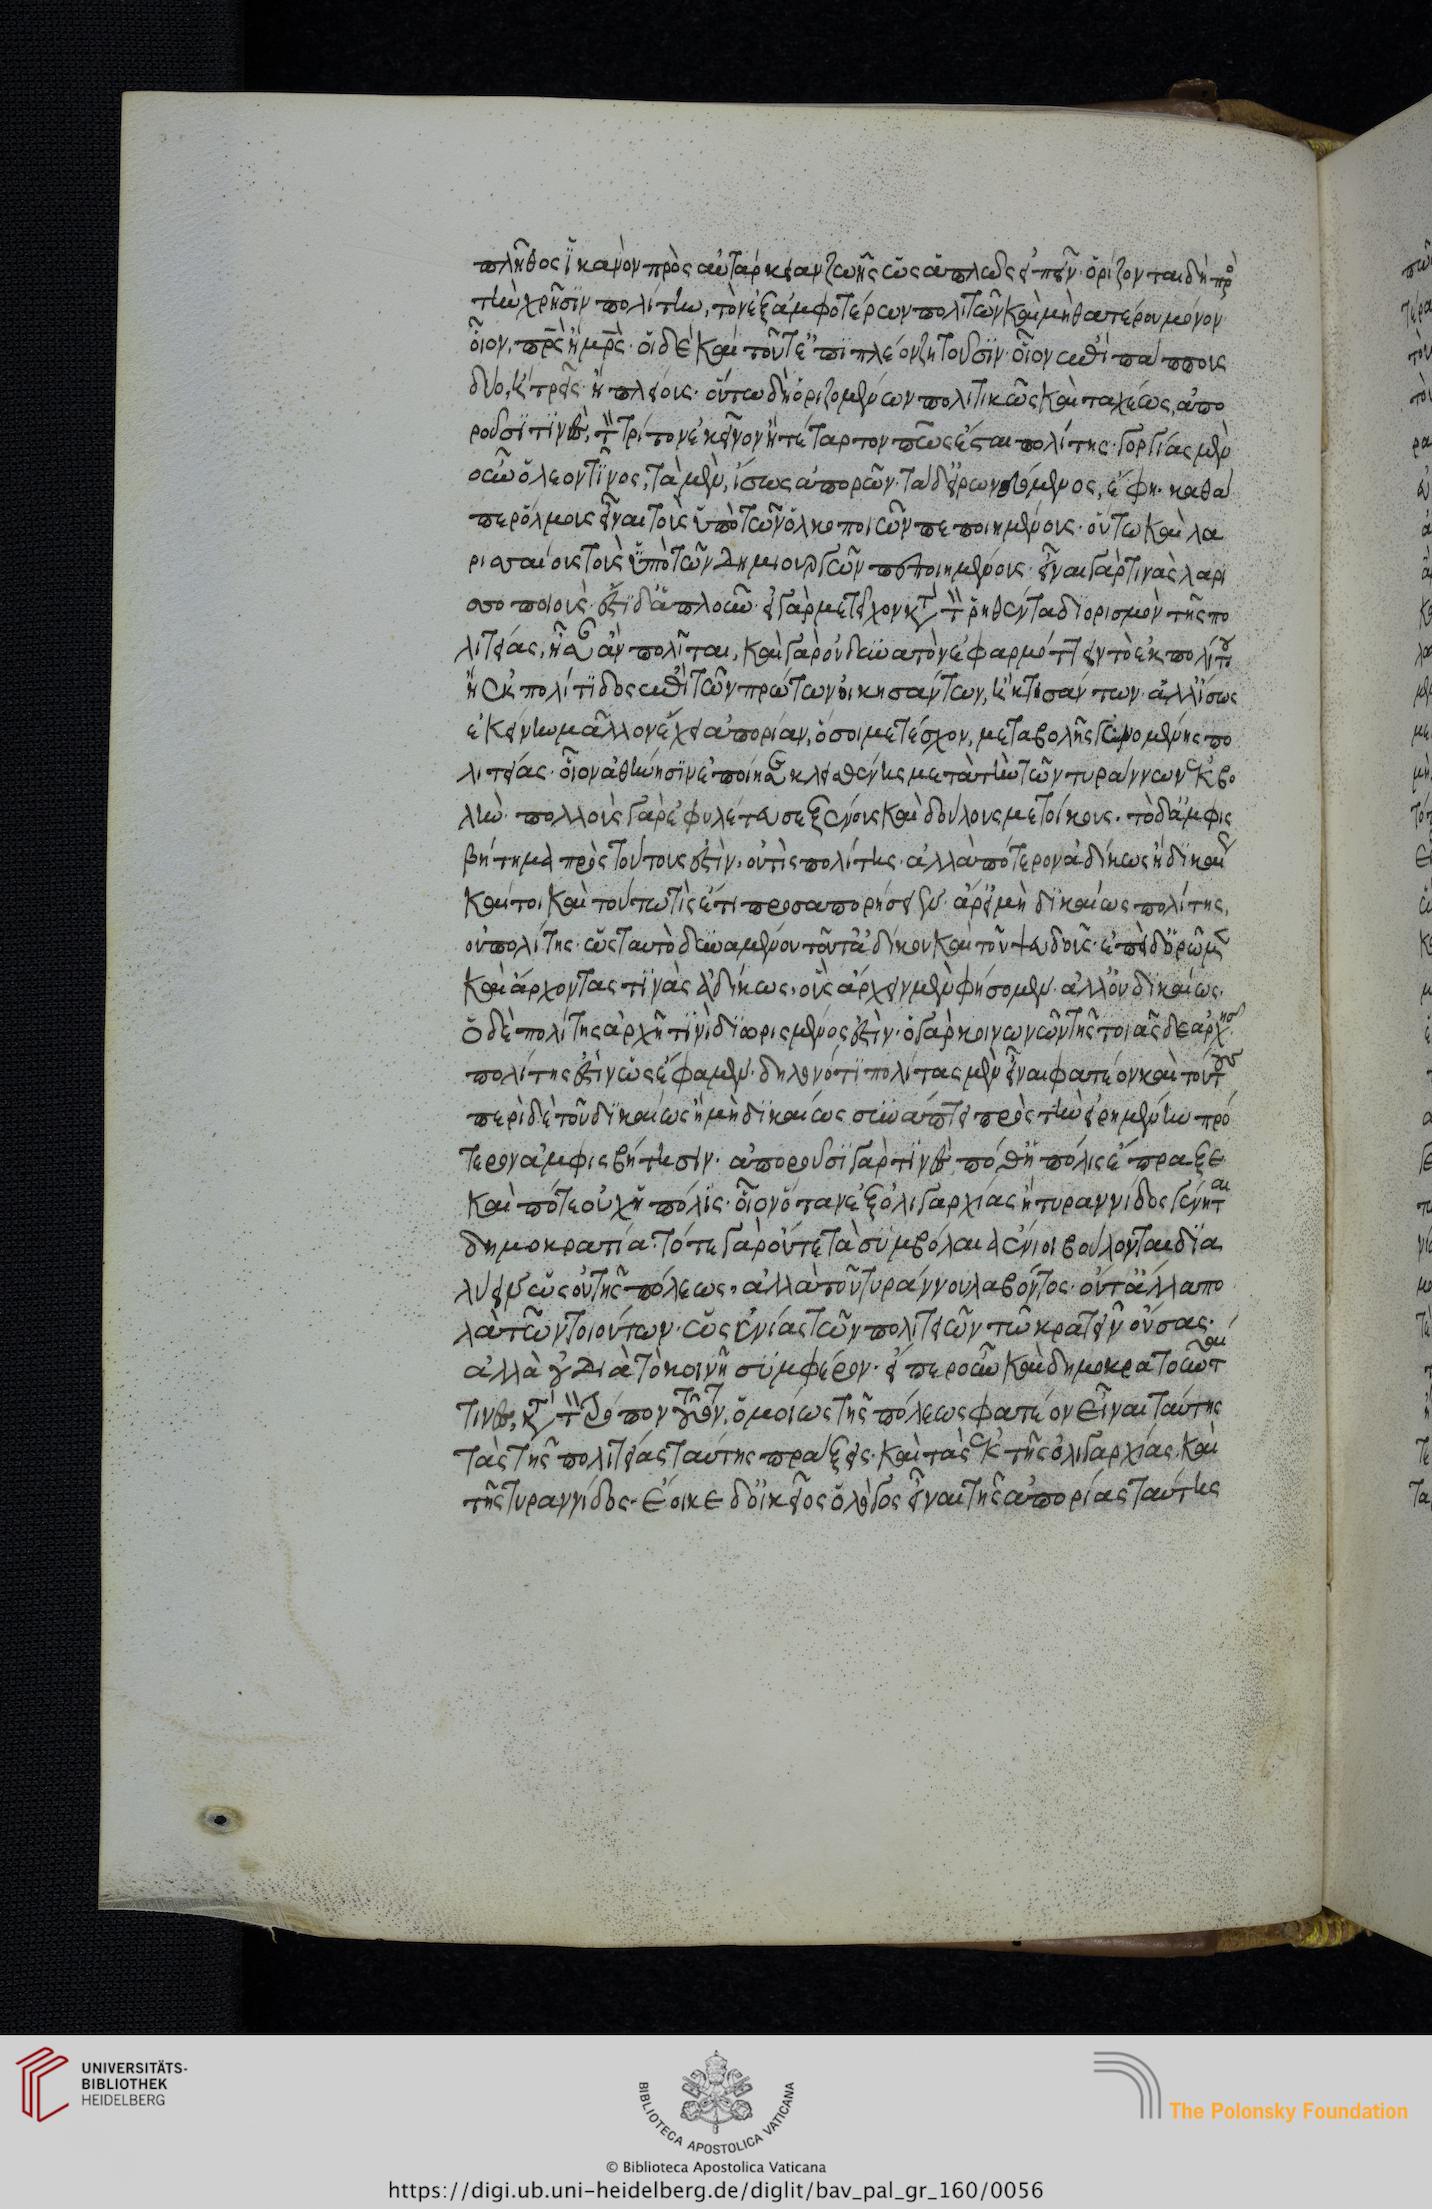 πλῆθος ἱκανὸν πρὸς αὐτάρκειαν ζωῆς ὡς ἁπλῶς εἰπεῖν. ὁρίζονται δὴ πρὸς
τὴν χρῆσιν πολίτην, τὸν ἐξ ἀμφοτέρων πολιτῶν καὶ μὴ θατέρου μόνον
οἷον, πρς ἢ μρς. οἱ δὲ καὶ τοῦτ' ἐπὶ πλέον ζητοῦσιν. οἷον ἐπὶ πάππους
δύο, ἢ τρεῖς. ἢ πλείους. οὕτω δὴ ὁριζομένων πολιτικῶς καὶ ταχέως, ἀπο
ροῦσί τινες, τὸν τρίτον ἐκεῖνον ἢ τέταρτον πῶς ἔσται πολίτης. Γοργίας μὲν
οὖν ὁ λεοντῖνος, τὰ μὲν, ἴσως ἀπορῶν. τὰ δ' εἰρωνευόμενος, ἔφη. καθά
περ ὅλμους εἶναι τοὺς ὑπὸ τῶν ὁλμοποιῶν πεποιημένους. οὕτω καὶ λα
ρισσαίους τοὺς ὑπὸ τῶν δημιουργῶν πεποιημένους. εἶναι γάρ τινας λαρι
σσοποιούς. ἔστι δ' ἁπλοῦν. εἰ γὰρ μετεῖχον κατὰ τὸν ῥηθέντα διορισμὸν τῆς πο
λιτείας, ἦσαν ἂν πολῖται, καὶ γὰρ οὐ δυνατὸν ἐφαρμόττειν τὸ ἐκ πολίτου
ἢ ἐκ πολίτιδος ἐπὶ τῶν πρώτων οἰκησάντων, ἢ κτισάντων. ἀλλ' ἴσως
ἐκεῖνο μᾶλλον ἔχει ἀπορίαν, ὅσοι μετέσχον, μεταβολῆς γενομένης πο
λιτείας. οἷον ἀθήνησιν ἐποίησε κλεισθένης μετὰ τὴν τῶν τυράννων ἐκβο
λήν. πολλοὺς γὰρ ἐφυλέτευσε ξένους καὶ δούλους μετοίκους. τὸ δ' ἀμφις
βήτημα πρὸς τούτους ἐστὶν, οὐ τίς πολίτης. ἀλλὰ πότερον ἀδίκως ἢ δικαίως
καίτοι καὶ τοῦτό τις ἔτι προσαπορήσειεν. ἆρ' εἰ μὴ δικαίως πολίτης,
οὐ πολίτης. ὡς ταυτὸ δυνάμενον τοῦ τ' ἀδίκου καὶ τοῦ ψευδοῦς. ἐπεὶ δ' ὁρῶμεν
καὶ ἄρχοντας τινὰς ἀδίκως, οὓς ἄρχειν μὲν φήσομεν. ἀλλ' οὐ δικαίως.
ὁ δὲ πολίτης ἀρχῇ τινὶ διωρισμένος ἐστίν. ὁ γὰρ κοινωνῶν τῆς τοιᾶσδε ἀρχῆς
πολίτης ἐστὶν ὡς ἔφαμεν. δῆλον ὅτι πολίτας μὲν εἶναι φατέον καὶ τούτους
περὶ δὲ τοῦ δικαίως ἢ μὴ δικαίως συνάπτει πρὸς τὴν εἰρημένην πρό
τερον ἀμφισβήτησιν. ἀποροῦσι γάρ τινες, πόθ' ἡ πόλις ἔπραξε
καὶ πότε οὐχ' ἡ πόλις. οἷον ὅταν ἐξ ὀλιγαρχίας ἢ τυραννίδος γένηται
δημοκρατία. τότε γὰρ οὔτε τὰ συμβόλαια ἔνιοι βούλονται δια
λύειν ὡς οὐ τῆς πόλεως, ἀλλὰ τοῦ τυράννου λαβόντος. οὔτ' ἄλλα πο
λλὰ τῶν τοιούτων. ὡς ἐνίας τῶν πολιτειῶν τῷ κρατεῖν οὔσας.
ἀλλὰ οὐ διὰ τὸ κοινῇ συμφέρον. εἴπερ οὖν καὶ δημοκρατοῦνται
τινες, κατὰ τὸν τρόπον τοῦτον, ὁμοίως τῆς πόλεως φατέον εἶναι ταύτης
τὰς τῆς πολιτείας ταύτης πράξεις. καὶ τὰς ἐκ τῆς ὀλιγαρχίας. καὶ
τῆς τυραννίδος. ἔοικε δ' οἰκεῖος ὁ λόγος εἶναι τῆς ἀπορίας ταύτης
UNIVERSITÄTS-
BIBLIOTHEK
HEIDELBERG
BIBLIOTECA APOSTOLICA VATICANA
The Polonsky Foundation
© Biblioteca Apostolica Vaticana
https://digi.ub.uni-heidelberg.de/diglit/bav_pal_gr_160/0056